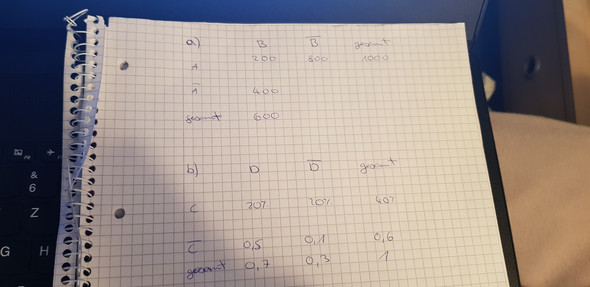 a) B B̅ gesamt
A 200 800 1000
A̅ 400
gesamt 600
b) D D̅ gesamt
C 20% 20% 40%
C̅ 0,5 0,1 0,6
gesamt 0,7 0,3 1
&
6
Z
G H